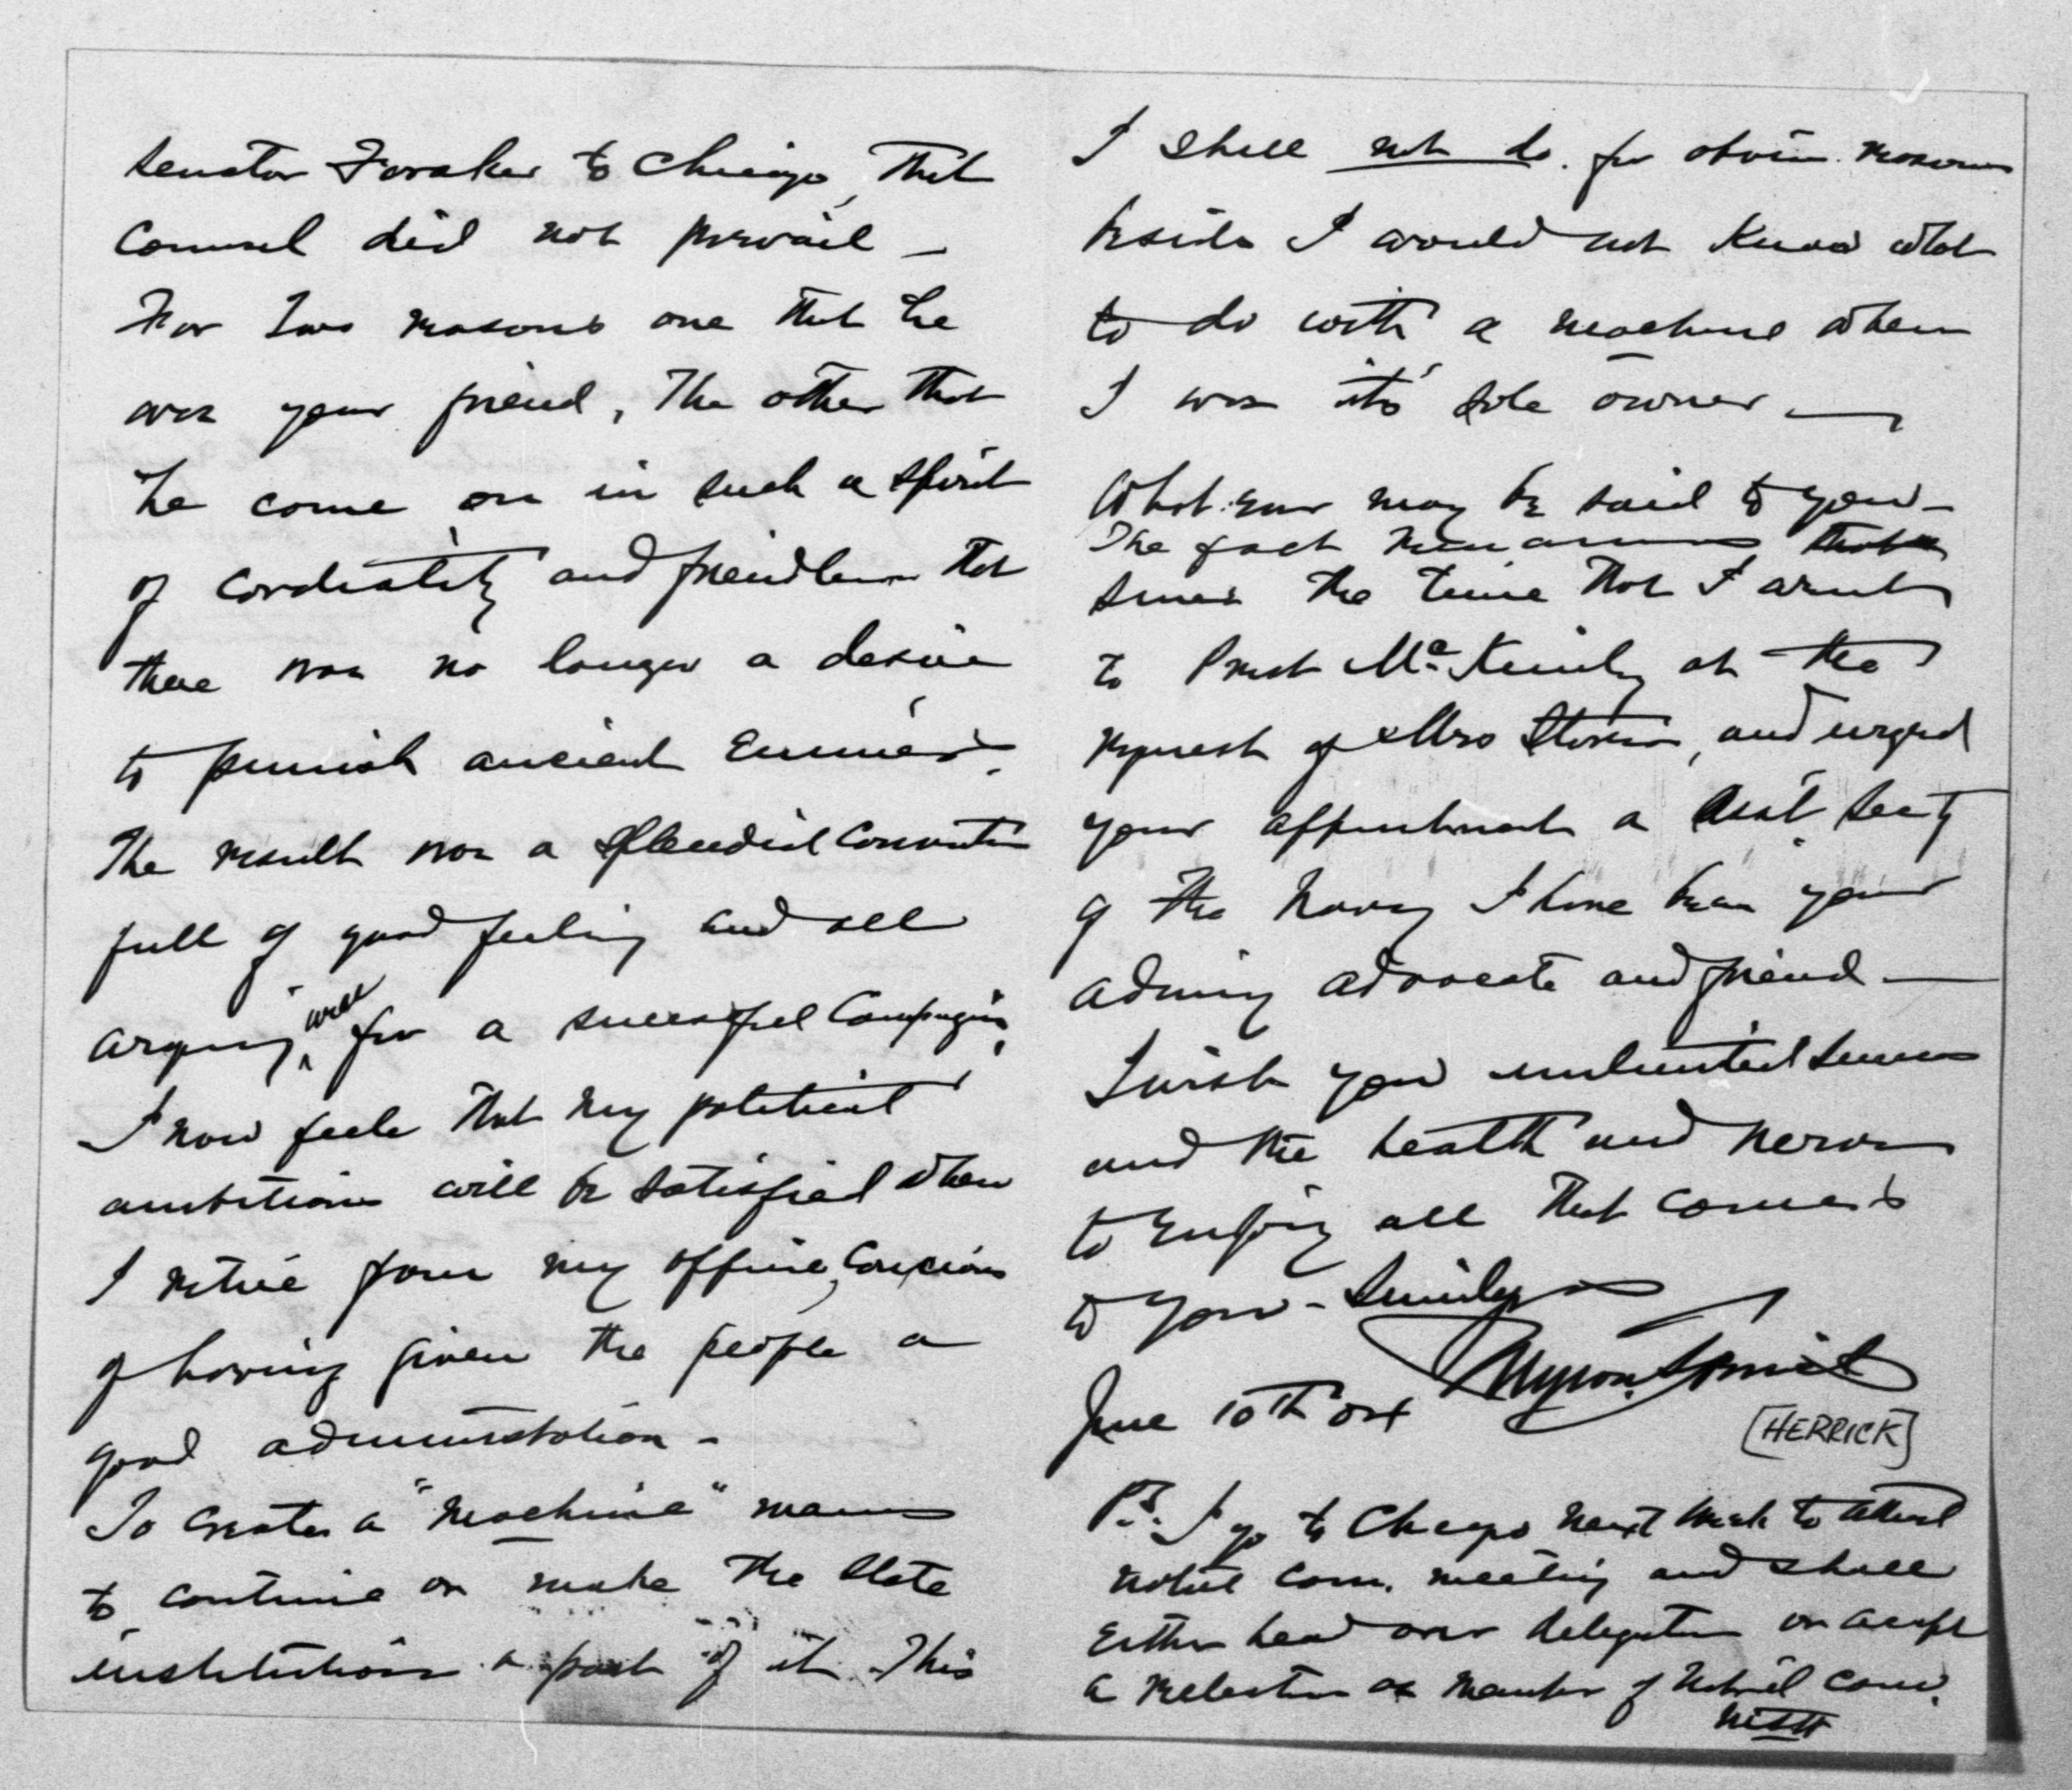 Senator Foraker to Chicago, that
Counsel did not prevail —
For Two reasons one that he
was your friend, The other that
he come on in such a spirit
of cordiality and friendliness that
there was no longer a desire
to punish ancient Enemies.
The result was a splendid Convention
full of good feeling and all
arguing well for a successful Campaign.
I now feele that my political
ambitions will be satisfied when
I retire from my office, Concious
of having given the people a
good administration -
To Create a "Machine" means
to continue or make the State
institutions a part of it. This
I shall not do. for obvious reasons
beside I would not Know what
to do with a machine when
I was it's sole owner —
What ever may be said to you -
The fact remains
since the time that I went
to Prest McKinley at the
request of Mrs Storer, and urged
your appointment a Asst Secty
of the Navy I have been your
admiring advocate and friend —
I wish you unlimited success
and the health and nerve
to Enjoy all that comes
to you - Sincerely
Myron T. Herrick
June 10th 04
[HERRICK]
P.S. I go to Chicago next week to attend
Natnl Com. meeting and shall
Either head our delegation or accept
a reelection as member of Natnl Com.
MTH